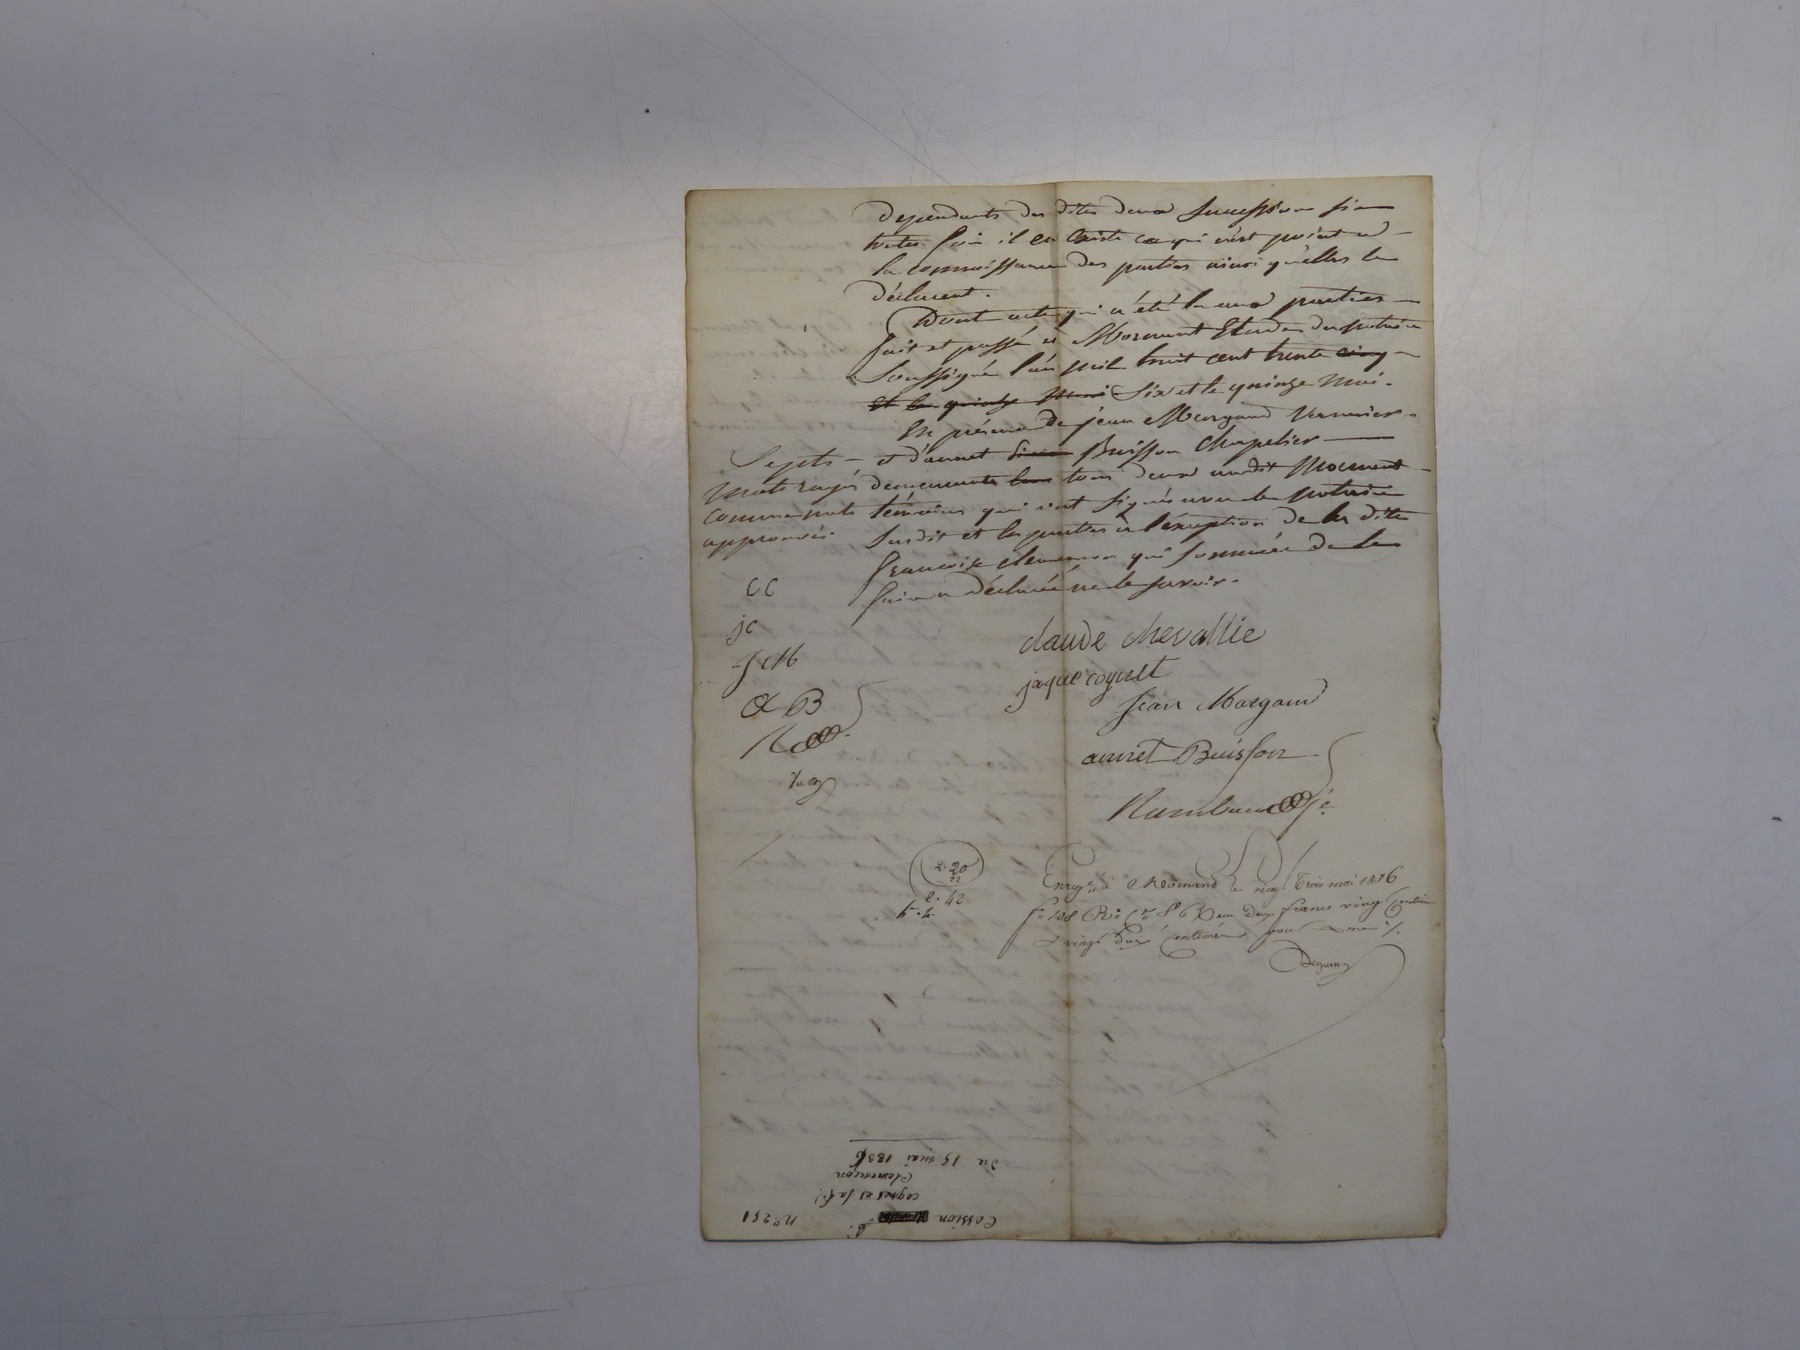 dependants des dites deux successions si
toutes fois il en existe ce qui n'est point a
la connoissance des parties ainsi qu'elles le
déclarent.
Dont acte qui a été lu aux parties
fait et passé à Mornant Etude du notaire
soussigné l'an mil huit cent trente cinq
et le quinze mai six et le quinze mai.
En présence de jean Morgand
et d'annet Buisson chapelier
demeurants tous deux audit Mornant
témoins qui ont signé avec le notaire
susdit et les parties à l'exception de la dite
françoise clemençon qui sommée de le
faire a déclaré ne le savoir.
Septs
mots rayés
comme nuls
approuvés.
CC
jc
J M
A B
R
claude chevallie
jaque cognet
jean Morgand
annet Buisson
Rambaud
2.20
22
2.42
Enreg. à Mornand le vingt trois mai 1836
f° 108 R° C 8 Reçu deux francs vingt centimes
& vingt deux centimes pour
n° 251
Cession
cognet et sa f.
Clemençon
du 15 mai 1836